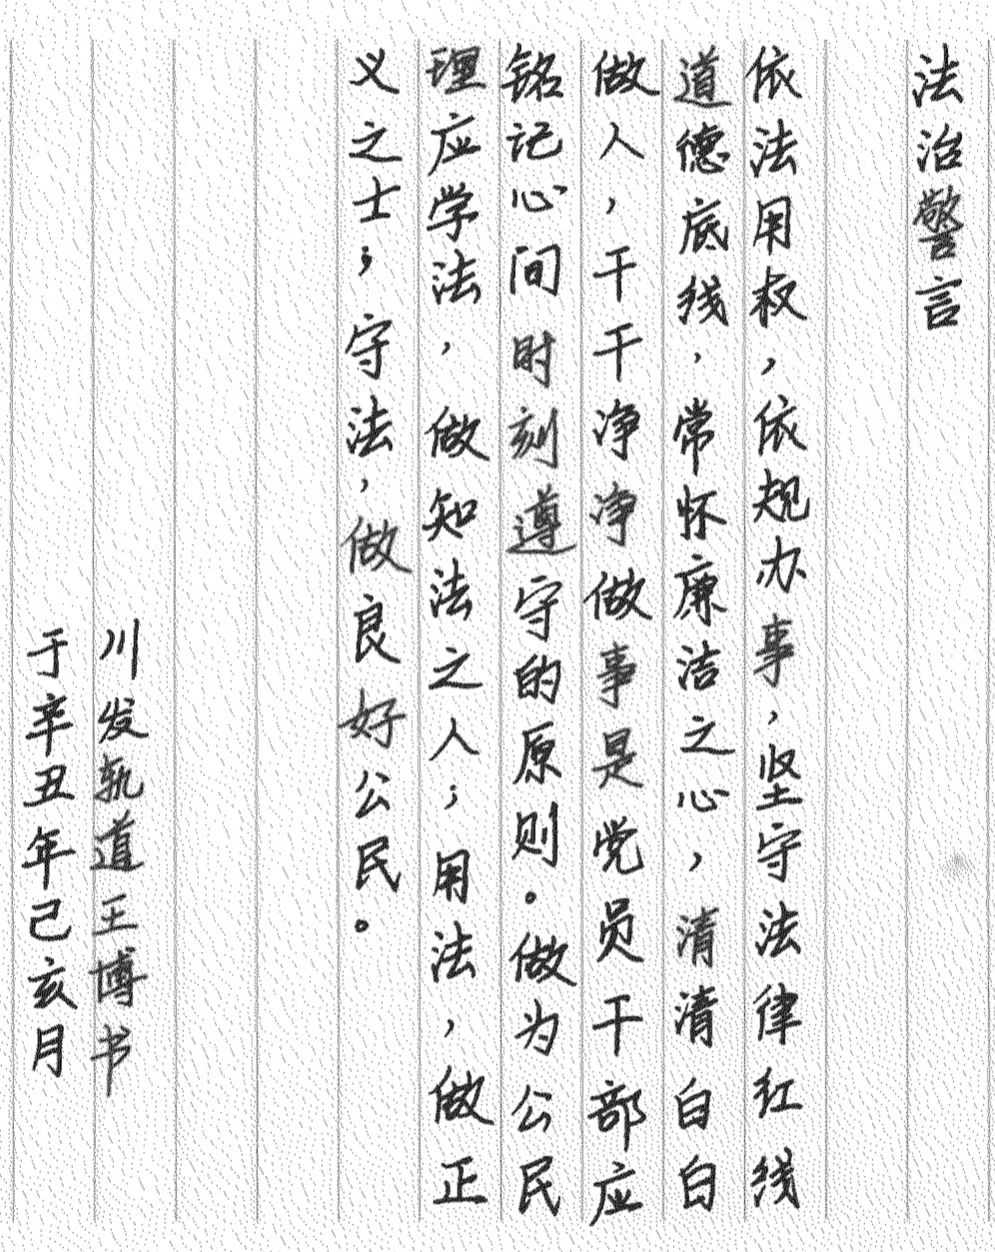 法治警言
依法用权,依规办事,坚守法律红线
道德底线,常怀廉洁之心,清清白白
做人,干干净净做事是党员干部应
铭记心间时刻遵守的原则。做为公民
理应学法,做知法之人;用法,做正
义之士;守法,做良好公民。
川发轨道王博书
于辛丑年己亥月